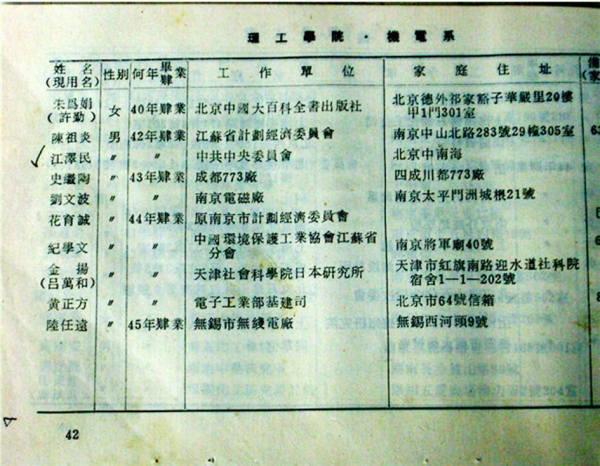 理工學院·機電系
姓名(現用名) 性別 何年畢肄業 工作單位 家庭住址 備
朱爲娟(許勤) 女 40年肄業 北京中國大百科全書出版社 北京德外祁家豁子華嚴里20樓甲1門301室
陳祖炎 男 42年肄業 江蘇省計劃經濟委員會 南京中山北路283號29幢305室
江澤民 〃 〃 中共中央委員會 北京中南海
史繼陶 〃 43年肄業 成都773廠 四成川都773廠
劉文波 〃 〃 南京電磁廠 南京太平門洲城根21號
花育誠 〃 44年肄業 原南京市計劃經濟委員會
紀學文 〃 〃 中國環境保護工業協會江蘇省分會 南京將軍廟40號
金揚(呂萬和) 〃 〃 天津社會科學院日本研究所 天津市紅旗南路迎水道社科院宿舍1—1—202號
黄正方 〃 〃 電子工業部基建司 北京市64號信箱
陸任遠 〃 45年肄業 無錫市無綫電廠 無錫西河頭9號
42